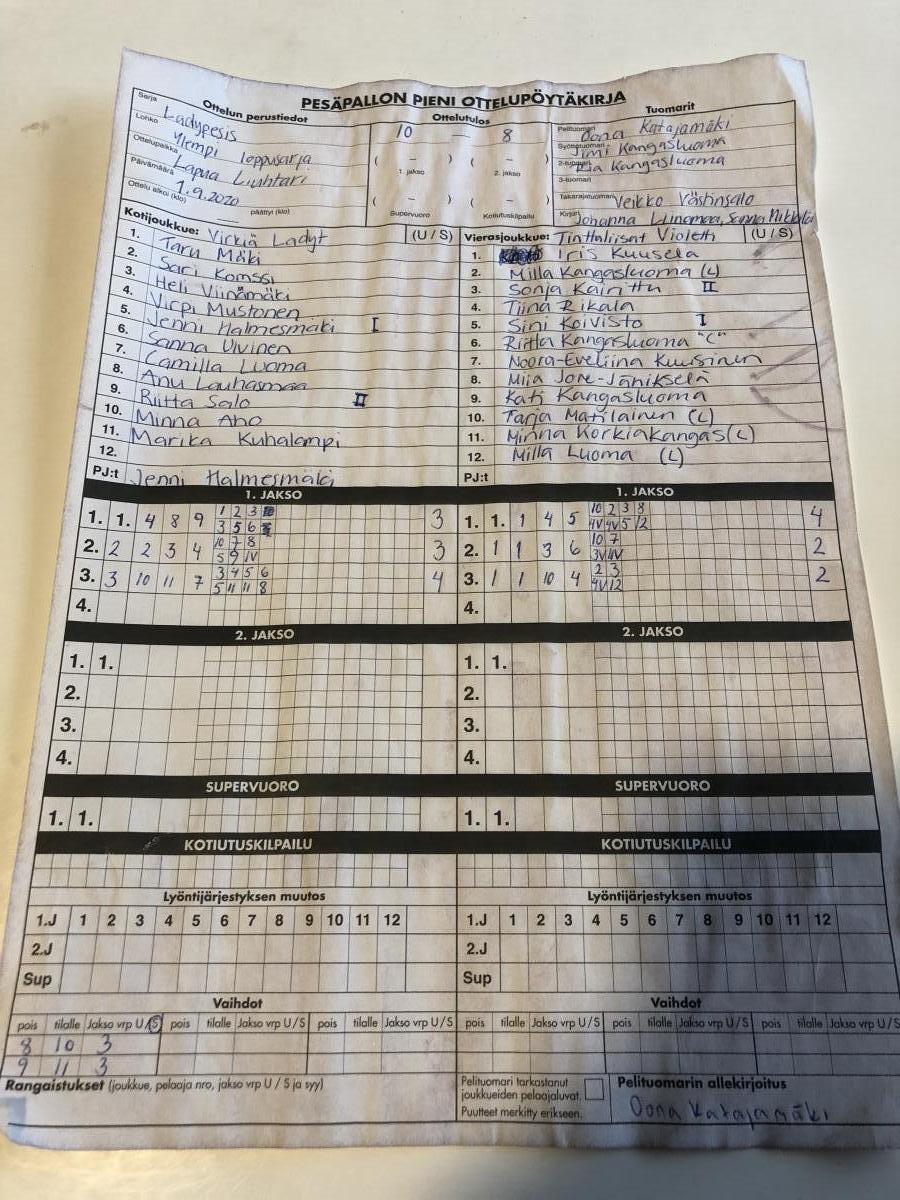 PESÄPALLON PIENI OTTELUPÖYTÄKIRJA
Ottelun perustiedot
Sarja Ladypesis
Lohko Ylempi loppusarja
Ottelupaikka Lapua Liuhtari
Päivämäärä 1.9.2020
Ottelu alkoi (klo) päättyi (klo)
Ottelutulos
10 — 8
( – ) ( – )
1. jakso 2. jakso
( – ) ( – )
Supervuoro Kotiutuskilpailu
Tuomarit
Pelituomari Oona Katajamäki
Syöttötuomari Jimi Kangasluoma
2-tuomari Ria Kangasluoma
3-tuomari
Takarajatuomari Veikko Västinsalo
Kirjuri Johanna Liinamaa, Sanna Mikkola
Kotijoukkue: Virkiä Ladyt (U / S)
1. Taru Mäki
2. Sari Komssi
3. Heli Viinämäki
4. Virpi Mustonen
5. Jenni Halmesmäki I
6. Sanna Ulvinen
7. Camilla Luoma
8. Anu Lauhasmaa
9. Riitta Salo II
10. Minna Aho
11. Marika Kuhalampi
12.
PJ:t Jenni Halmesmäki
Vierasjoukkue: Tinttaliisat Violetti (U / S)
1. Iris Kuusela
2. Milla Kangasluoma (L)
3. Sonja Kairittu II
4. Tiina Rikala
5. Sini Koivisto I
6. Riitta Kangasluoma "C"
7. Noora-Eveliina Kuusinen
8. Miia Jore-Jänikselä
9. Kati Kangasluoma
10. Tarja Matilainen (L)
11. Minna Korkiakangas (L)
12. Milla Luoma (L)
PJ:t
1. JAKSO
1. 1. 4 8 9 1 2 3 3
3 5 6
2. 2 2 3 4 10 7 8 3
5 9 IV
3. 3 10 11 7 3 4 5 6 4
5 11 11 8
4.
1. JAKSO
1. 1. 1 4 5 10 2 3 8 4
4V 4V 5 12
2. 1 1 3 6 10 7 2
3V IV
3. 1 1 10 4 2 3 2
4V 12
4.
2. JAKSO
1. 1.
2.
3.
4.
2. JAKSO
1. 1.
2.
3.
4.
SUPERVUORO
1. 1.
SUPERVUORO
1. 1.
KOTIUTUSKILPAILU
KOTIUTUSKILPAILU
Lyöntijärjestyksen muutos
1.J 1 2 3 4 5 6 7 8 9 10 11 12
2.J
Sup
Lyöntijärjestyksen muutos
1.J 1 2 3 4 5 6 7 8 9 10 11 12
2.J
Sup
Vaihdot
pois tilalle Jakso vrp U/S pois tilalle Jakso vrp U/S pois tilalle Jakso vrp U/S
8 10 3
9 11 3
Vaihdot
pois tilalle Jakso vrp U/S pois tilalle Jakso vrp U/S pois tilalle Jakso vrp U/S
Rangaistukset (joukkue, pelaaja nro, jakso vrp U / S ja syy)
Pelituomari tarkastanut
joukkueiden pelaajaluvat.
Puutteet merkitty erikseen.
Pelituomarin allekirjoitus
Oona Katajamäki